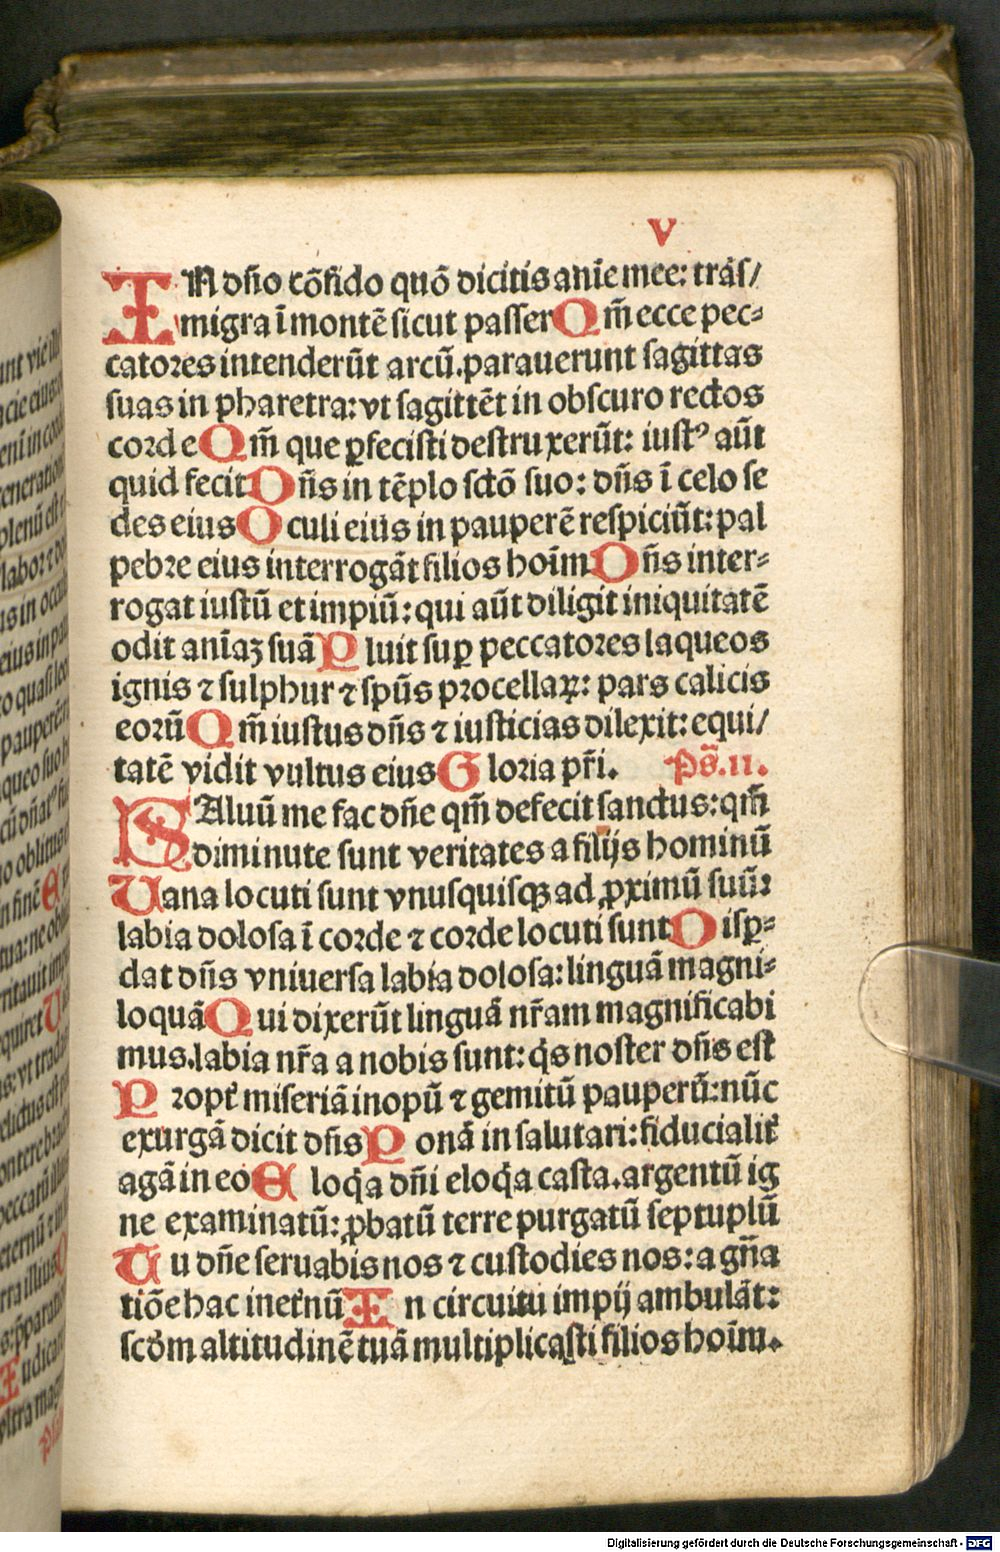 V
IN dño cõfido quõ dicitis anie mee: trãs/
migra ĩ montẽ sicut passer Qm̃ ecce pec-
catores intenderũt arcũ.parauerunt sagittas
suas in pharetra: vt sagittẽt in obscuro rectos
corde Qm̃ que ꝑfecisti destruxerũt: iustꝰ aũt
quid fecit Dñs in tẽplo sctõ suo: dñs ĩ celo se
des eius Oculi eius in pauperẽ respiciũt: pal
pebre eius interrogãt filios hoĩm Dñs inter-
rogat iustũ et impiũ: qui aũt diligit iniquitatẽ
odit aniãꝫ suã Pluit suꝑ peccatores laqueos
ignis ⁊ sulphur ⁊ spũs procellaꝝ: pars calicis
eorũ Qm̃ iustus dñs ⁊ iusticias dilexit: equi/
tatẽ vidit vultus eius Gloria pr̃i. Ps̃.11.
SAluũ me fac dñe qm̃ defecit sanctus: qm̃
diminute sunt veritates a filijs hominũ
Uana locuti sunt vnusquisqꝫ ad ꝓximũ suũ:
labia dolosa ĩ corde ⁊ corde locuti sunt Disꝑ-
dat dñs vniuersa labia dolosa: linguã magni-
loquã Qui dixerũt linguã nr̃am magnificabi
mus.labia nr̃a a nobis sunt: q̇s noster dñs est
Propt̃ miseriã inopũ ⁊ gemitũ pauperũ: nũc
exurgã dicit dñs Ponã in salutari: fiducialit̃
agã in eo Eloq̃a dñi eloq̃a casta.argentũ ig
ne examinatũ: ꝓbatũ terre purgatũ septuplũ
Tu dñe seruabis nos ⁊ custodies nos: a gña
tiõe hac inet̃nũ In circuitu impij ambulãt:
scd̃m altitudinẽ tuã multiplicasti filios hoĩm.
Digitalisierung gefördert durch die Deutsche Forschungsgemeinschaft - DFG